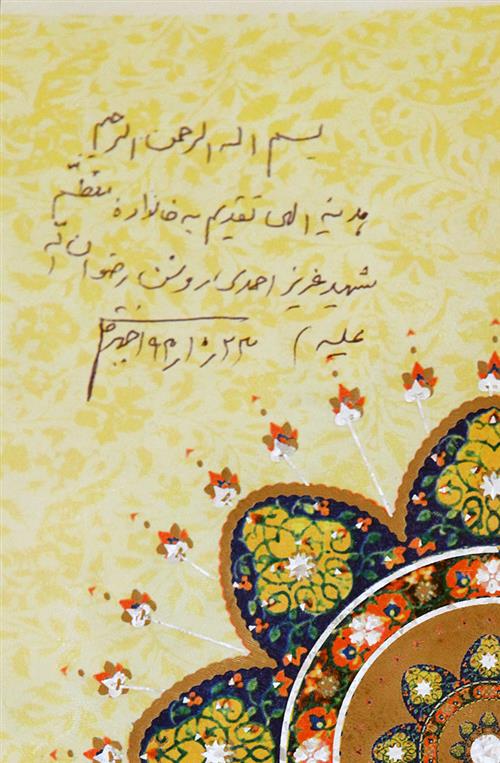 بسم اله الرحمن الرحیم
هدیه الهی تقدیم به خانواده معظم
شهید عزیز احمدی روشن رضوان اله
علیه